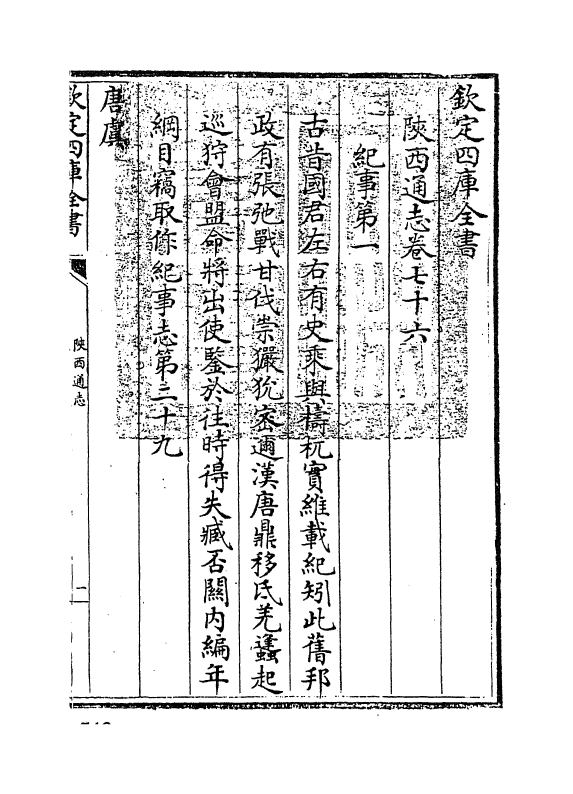 欽定四庫全書
陜西通志卷七十六
紀事第一
古昔國君左右有史乘與檮杌實維載紀矧此舊邦
政有張弛戰甘伐崇玁狁密邇漢唐鼎移氐羌蠭起
巡狩會盟命將出使鑒於往時得失臧否關內編年
綱目竊取作紀事志第三十九
唐虞
欽定四庫全書
陜西通志
一